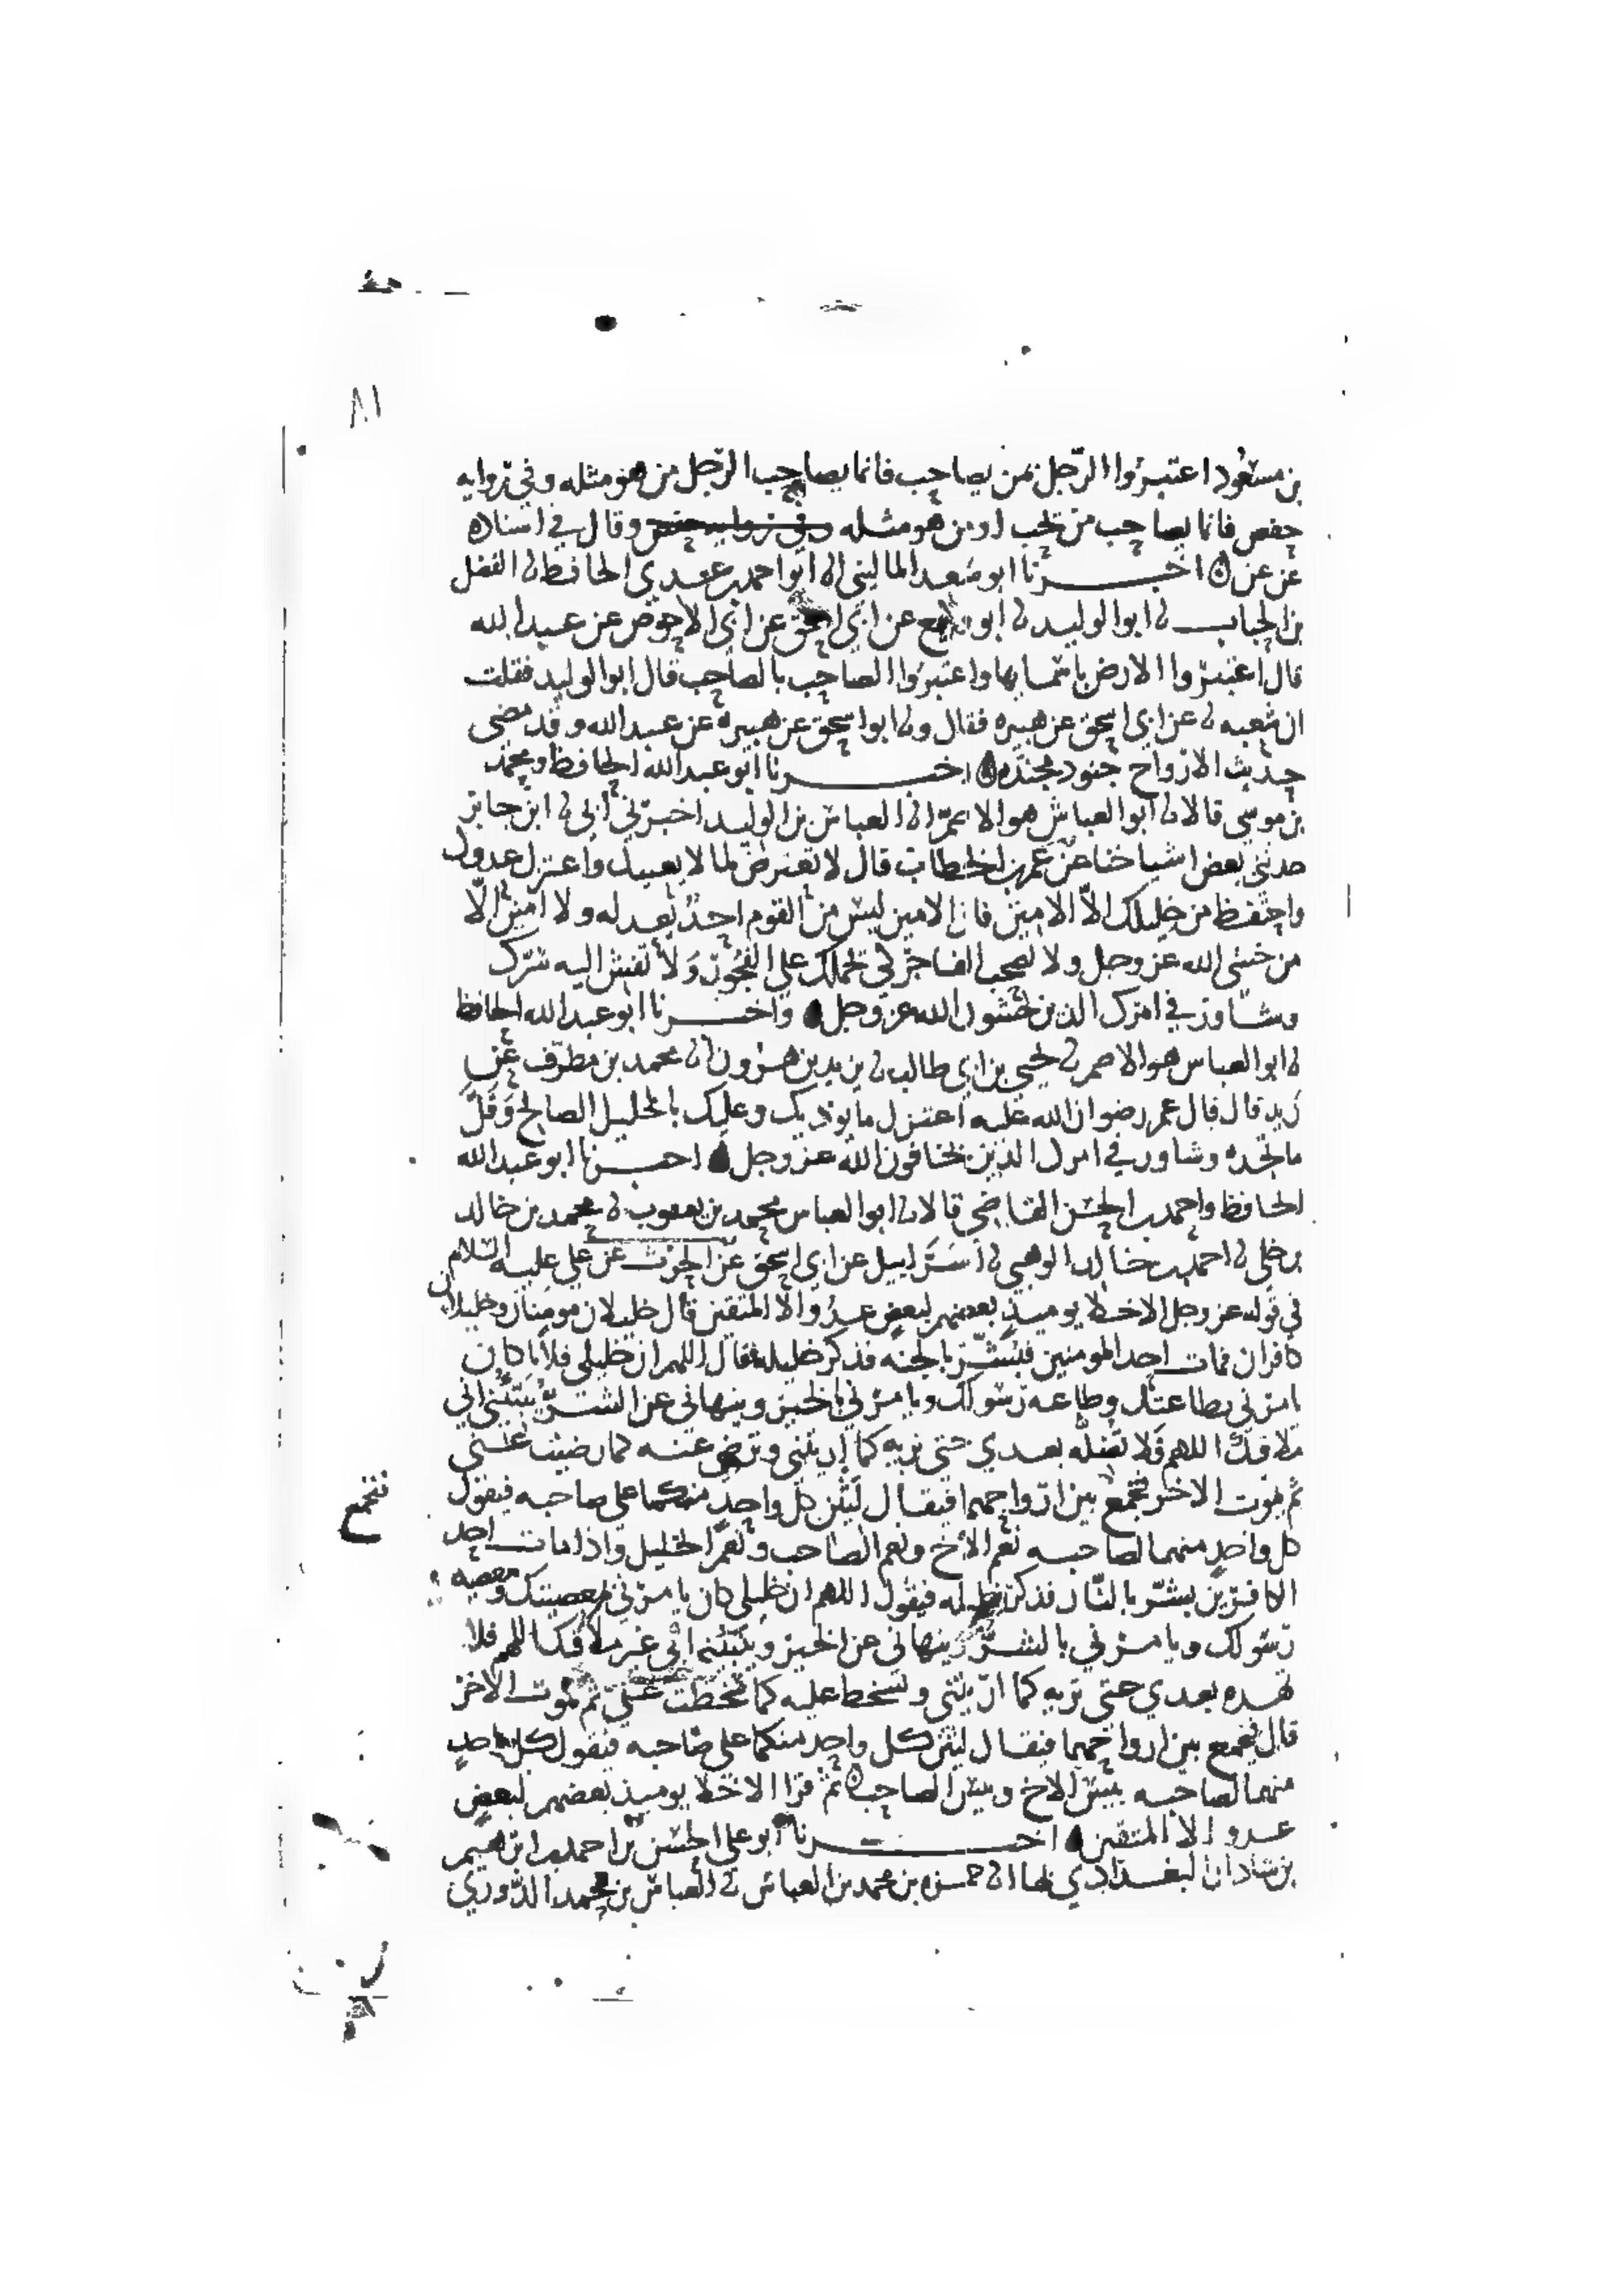 ٨١
بن مسعود اعتبروا الرجل بمن يصاحب فانما يصاحب الرجل من هو مثله وفي روايه
حفص فانما يصاحب من يحب او من هو مثله وفي روايه حفص وقال في اسناده
عن عن اخبرنا ابو سعد الماليني انا ابو احمد بن عدي الحافظ نا الفضل
بن الحباب نا ابو الوليد نا ابو وكيع عن ابي اسحق عن ابي الاحوص عن عبد الله
قال اعتبروا الارض باسمايها واعتبروا الصاحب بالصاحب قال ابو الوليد فقلت
ان شعبه نا عن ابي اسحق عن هبيره فقال ونا ابو اسحق عن هبيرة عن عبد الله وقد مضى
حديث الارواح جنود مجنده اخبرنا ابو عبد الله الحافظ ومحمد
بن موسى قالا نا ابو العباس هو الاصم انا العباس بن الوليد اخبرني ابي نا ابن جابر
حدثني بعض اشياخنا عن عمر بن الخطاب قال لا تعترض لما لا يعنيك واعتزل عدوك
واحتفظ من خليلك الا الامين فان الامين ليس من القوم احد يعدله ولا امين الا
من خشي الله عز وجل ولا تصحب الفاجر كي يحملك على الفجور ولا تفش اليه سرك
وشاور في امرك الذين يخشون الله عز وجل واخبرنا ابو عبد الله الحافظ
نا ابو العباس هو الاصم نا يحيى بن ابي طالب نا يزيد بن هرون انا محمد بن مطرف عن
زيد قال قال عمر رضوان الله عليه اعتزل ما يوذيك وعليك بالخليل الصالح وقل
ما تجده وشاور في امرك الذين يخافون الله عز وجل اخبرنا ابو عبد الله
الحافظ واحمد بن الحسن القاضي قالا نا ابو العباس محمد بن يعقوب نا محمد بن خالد
بن خلي نا احمد بن خالد الوهبي نا اسراييل عن ابي اسحق عن الحرث عن علي عليه السلام
في قوله عز وجل الاخلا يوميذ بعضهم لبعض عدو الا المتقين قال خليلان مومنان وخليلان
كافران فمات احد المومنين فبشر بالجنه فذكر خليله فقال اللهم ان خليلي فلانا كان
يامرني بطاعتك وطاعه رسولك ويامرني بالخير وينهاني عن الشر وينبئني اني
ملاقيك اللهم فلا تضله بعدي حتى تريه كما اريتني وترضى عنه كما رضيت عني
ثم يموت الاخر فيجمع بين ارواحهما فيقال ليثن كل واحد منكما على صاحبه فيقول
فيجمع
كل واحد منهما لصاحبه نعم الاخ ونعم الصاحب ونعم الخليل واذا مات احد
الكافرين بشر بالنار فذكر خليله فيقول اللهم ان خليلي كان يامرني بمعصيتك ومعصيه
رسولك ويامرني بالشر وينهاني عن الخير وينبئني اني غير ملاقيك اللهم فلا
تهده بعدي حتى تريه كما اريتني وتسخط عليه كما سخطت علي ثم يموت الاخر
قال فيجمع بين ارواحهما فيقال ليثن كل واحد منكما على صاحبه فيقول كل واحد
منهما لصاحبه بيس الاخ وبيس الصاحب ثم قرا الاخلا يوميذ بعضهم لبعض
عدو الا المتقين اخبرنا ابو علي الحسن بن احمد بن ابرهيم
بن شاذان البغدادي بها انا حمزه بن محمد بن العباس نا العباس بن محمد الدوري